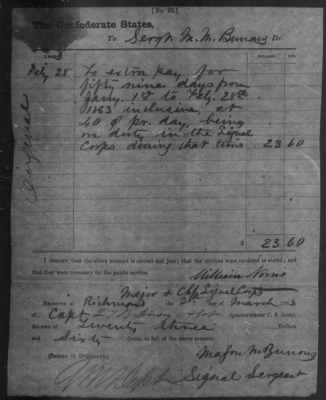 [No. 22.]
The Confederate States,
To Sergt M. M. Burroughs Dr.
Feby. 28 To extra pay for
fifty nine days from
Jany. 1st to Feby. 28th
1863 inclusive at
40 ¢ pr. day, being
on duty in the Signal
Corps during that time 23 60
Original
$ 23 60
I certify that the above account is correct and just; that the services were rendered as stated; and
that they were necessary for the public service.
William Norris
Major & Chf Signal Corps
Received at Richmond the of March 1863
of Capt Quartermaster C. S. Army,
the sum of Twenty three Dollars
and Sixty Cents, in full of the above account.
(Signed in Duplicate)
Signal Sergeant